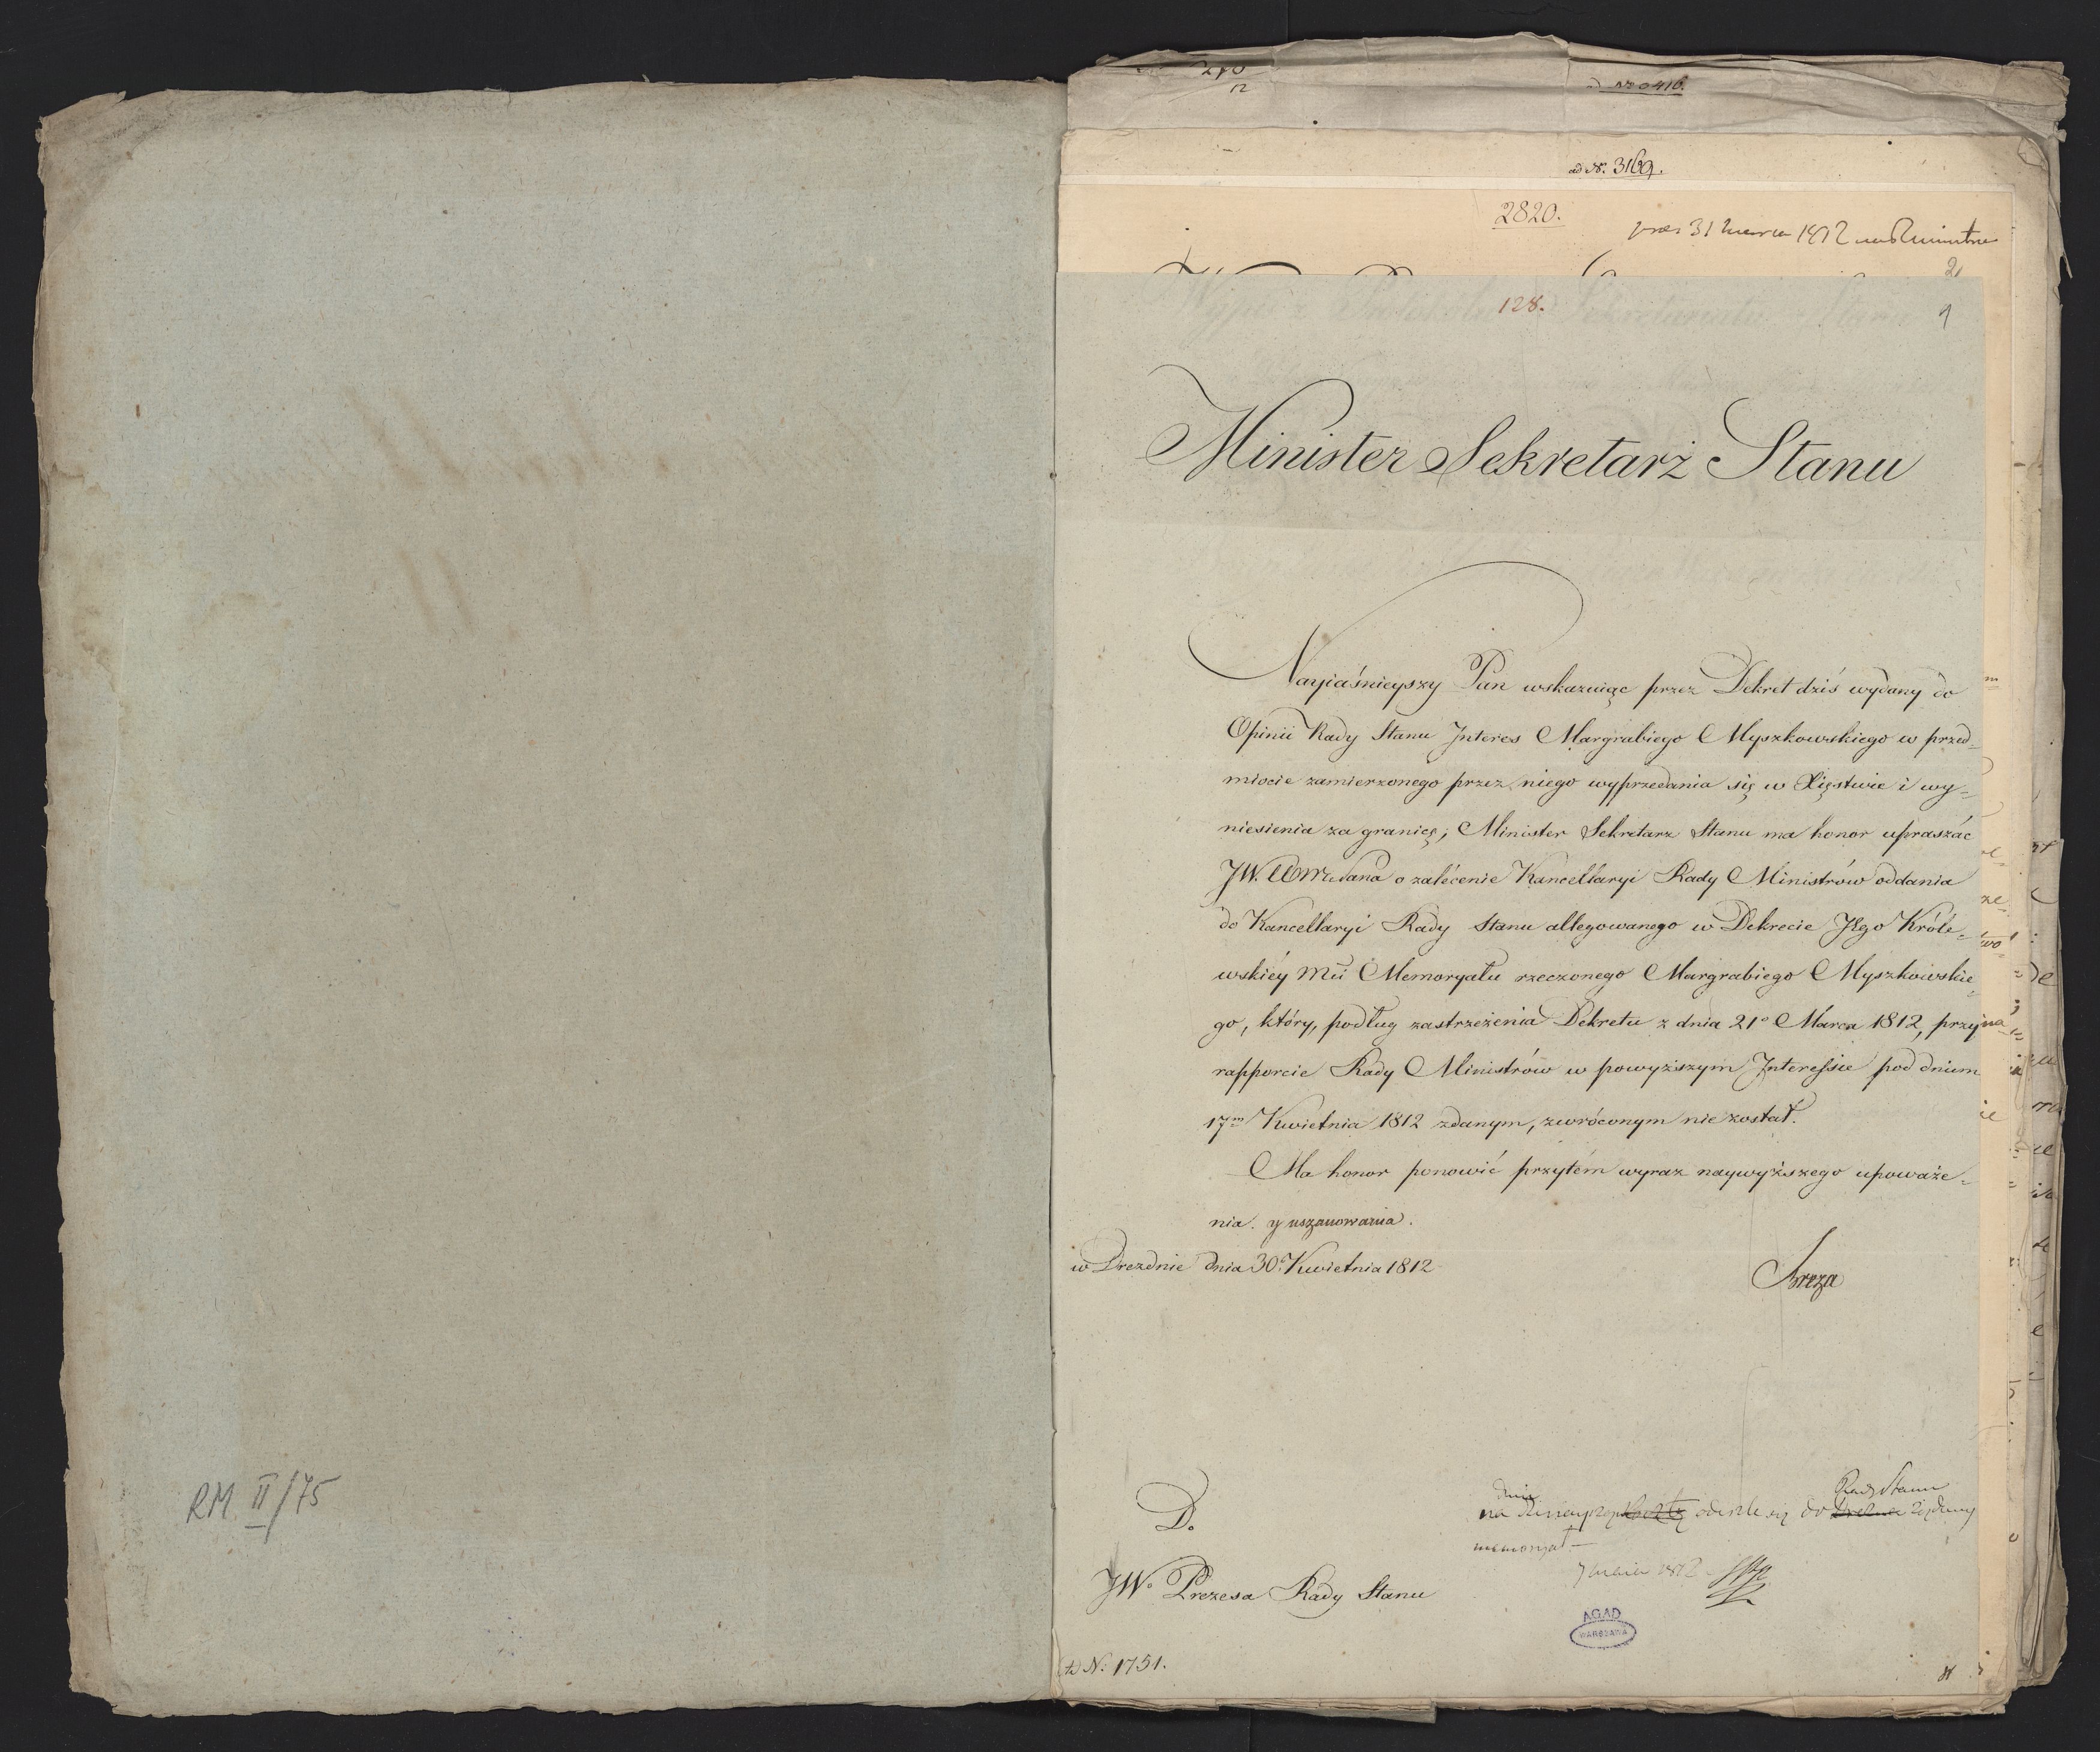 RM II/75
ad Nr 3169.
2820.
2
128.
1
Minister Sekretarz Stanu
Nayiaśnieyszy Pan wskazuiąc przez Dekret dziś wydany do
Opinii Rady Stanu Jnteres Margrabiego Myszkowskiego w przed=
miocie zamierzonego przez niego wyprzedania się w Xięstwie i wy=
niesienia za granicę; Minister Sekretarz Stanu ma honor upraszać
JW. Pana o zalécenie Kancellaryi Rady Ministrów oddania
do Kancellaryi Rady Stanu allegowanego w Dekrecie JKgo Króle=
wskiéy Mci Memoryału rzeczonego Margrabiego Myszkowskie=
go, który, podług zastrzeżenia Dekretu z dnia 21° Marca 1812, przy
rapporcie Rady Ministrów w powyższym Jnteressie pod dniem
17m Kwietnia 1812 zdanym, zwróconym nie został.
Ma honor ponowić przytém wyraz naywyższego upoważe=
nia. y uszanowania.
w Dreznie dnia 30° Kwietnia 1812
Breza
D.
JW° Prezesa Rady Stanu
dniu Rady Stanu
na odeszle się do żądany
memoryał.—
7 1812
AGAD
WARSZAWA
N: 1751.